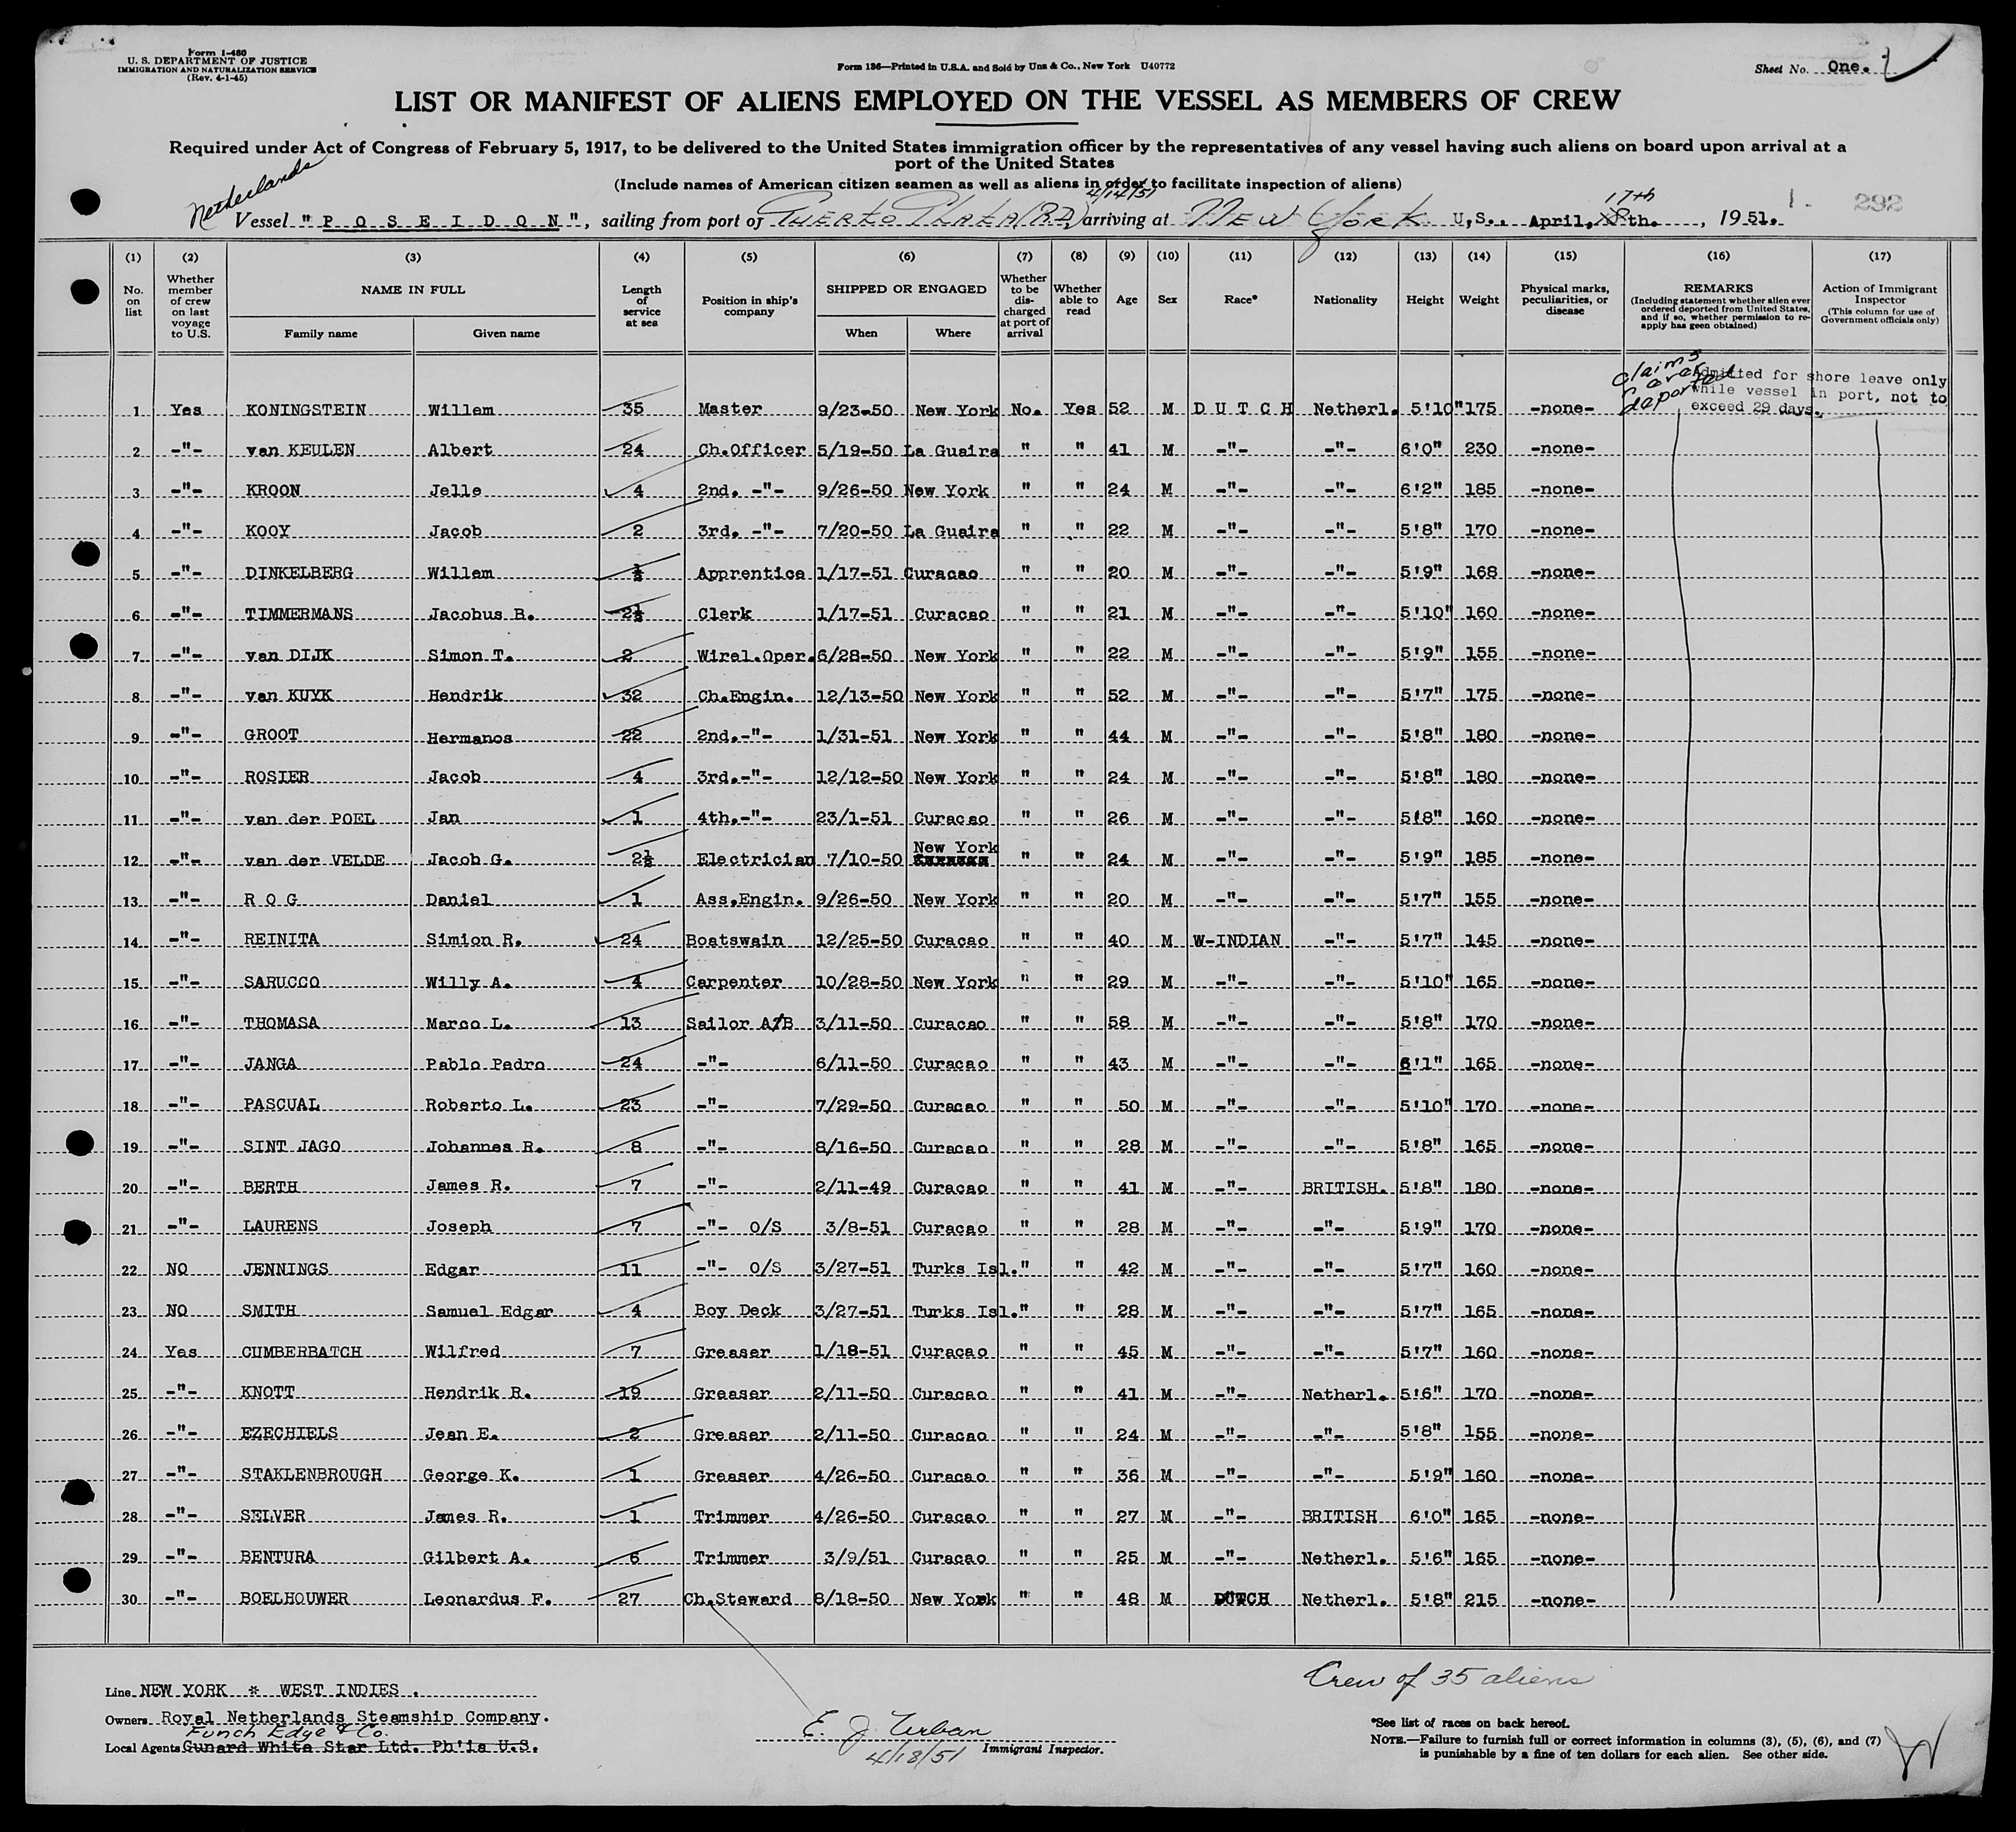 Form I-480
U. S. DEPARTMENT OF JUSTICE
IMMIGRATION AND NATURALIZATION SERVICE
(Rev. 4-1-45)
Form 136—Printed in U.S.A. and Sold by Unz & Co., New York U40772
Sheet No. One. 1
LIST OR MANIFEST OF ALIENS EMPLOYED ON THE VESSEL AS MEMBERS OF CREW
Required under Act of Congress of February 5, 1917, to be delivered to the United States immigration officer by the representatives of any vessel having such aliens on board upon arrival at a
port of the United States
(Include names of American citizen seamen as well as aliens in order to facilitate inspection of aliens)
Netherlands
4/14/51
17th
Vessel "P O S E I D O N", sailing from port of Puerto Plata (RD) arriving at New York U.S., April, 18th. , 1951. 1- 292
(1) (2) (3) (4) (5) (6) (7) (8) (9) (10) (11) (12) (13) (14) (15) (16) (17)
No. on list
Whether member of crew on last voyage to U.S.
NAME IN FULL
Family name Given name
Length of service at sea
Position in ship's company
SHIPPED OR ENGAGED
When Where
Whether to be discharged at port of arrival
Whether able to read
Age
Sex
Race*
Nationality
Height
Weight
Physical marks, peculiarities, or disease
REMARKS
(Including statement whether alien ever ordered deported from United States, and if so, whether permission to re-apply has geen obtained)
Action of Immigrant Inspector
(This column for use of Government officials only)
Claims never deported
Admitted for shore leave only
while vessel in port, not to
exceed 29 days.
1 Yes KONINGSTEIN Willem 35 Master 9/23-50 New York No. Yes 52 M D U T C H Netherl. 5'10" 175 -none-
2 -"- van KEULEN Albert 24 Ch.Officer 5/19-50 La Guaira " " 41 M -"- -"- 6'0" 230 -none-
3 -"- KROON Jelle 4 2nd. -"- 9/26-50 New York " " 24 M -"- -"- 6'2" 185 -none-
4 -"- KOOY Jacob 2 3rd. -"- 7/20-50 La Guaira " " 22 M -"- -"- 5'8" 170 -none-
5 -"- DINKELBERG Willem ½ Apprentice 1/17-51 Curacao " " 20 M -"- -"- 5'9" 168 -none-
6 -"- TIMMERMANS Jacobus B. 2½ Clerk 1/17-51 Curacao " " 21 M -"- -"- 5'10" 160 -none-
7 -"- van DIJK Simon T. 2 Wirel.Oper. 6/28-50 New York " " 22 M -"- -"- 5'9" 155 -none-
8 -"- van KUYK Hendrik 32 Ch.Engin. 12/13-50 New York " " 52 M -"- -"- 5'7" 175 -none-
9 -"- GROOT Hermanos 22 2nd.-"- 1/31-51 New York " " 44 M -"- -"- 5'8" 180 -none-
10 -"- ROSIER Jacob 4 3rd.-"- 12/12-50 New York " " 24 M -"- -"- 5'8" 180 -none-
11 -"- van der POEL Jan 1 4th.-"- 23/1-51 Curacao " " 26 M -"- -"- 5'8" 160 -none-
12 -"- van der VELDE Jacob G. 2½ Electrician 7/10-50 New York " " 24 M -"- -"- 5'9" 185 -none-
13 -"- R O G Daniel 1 Ass.Engin. 9/26-50 New York " " 20 M -"- -"- 5'7" 155 -none-
14 -"- REINITA Simion R. 24 Boatswain 12/25-50 Curacao " " 40 M W-INDIAN -"- 5'7" 145 -none-
15 -"- SARUCCO Willy A. 4 Carpenter 10/28-50 New York " " 29 M -"- -"- 5'10" 165 -none-
16 -"- THOMASA Marco L. 13 Sailor A/B 3/11-50 Curacao " " 58 M -"- -"- 5'8" 170 -none-
17 -"- JANGA Pablo Pedro 24 -"- 6/11-50 Curacao " " 43 M -"- -"- 6'1" 165 -none-
18 -"- PASCUAL Roberto L. 23 -"- 7/29-50 Curacao " " 50 M -"- -"- 5'10" 170 -none-
19 -"- SINT JAGO Johannes R. 8 -"- 8/16-50 Curacao " " 28 M -"- -"- 5'8" 165 -none-
20 -"- BERTH James R. 7 -"- 2/11-49 Curacao " " 41 M -"- BRITISH. 5'8" 180 -none-
21 -"- LAURENS Joseph 7 -"- O/S 3/8-51 Curacao " " 28 M -"- -"- 5'9" 170 -none-
22 NO JENNINGS Edgar 11 -"- O/S 3/27-51 Turks Isl. " " 42 M -"- -"- 5'7" 160 -none-
23 NO SMITH Samuel Edgar 4 Boy Deck 3/27-51 Turks Isl. " " 28 M -"- -"- 5'7" 165 -none-
24 Yes CUMBERBATCH Wilfred 7 Greaser 1/18-51 Curacao " " 45 M -"- -"- 5'7" 160 -none-
25 -"- KNOTT Hendrik R. 19 Greaser 2/11-50 Curacao " " 41 M -"- Netherl. 5'6" 170 -none-
26 -"- EZECHIELS Jean E. 2 Greaser 2/11-50 Curacao " " 24 M -"- -"- 5'8" 155 -none-
27 -"- STAKLENBROUGH George K. 1 Greaser 4/26-50 Curacao " " 36 M -"- -"- 5'9" 160 -none-
28 -"- SELVER James R. 1 Trimmer 4/26-50 Curacao " " 27 M -"- BRITISH 6'0" 165 -none-
29 -"- BENTURA Gilbert A. 6 Trimmer 3/9/51 Curacao " " 25 M -"- Netherl. 5'6" 165 -none-
30 -"- BOELHOUWER Leonardus F. 27 Ch.Steward 8/18-50 New York " " 48 M DUTCH Netherl. 5'8" 215 -none-
Crew of 35 aliens
Line NEW YORK * WEST INDIES .
Owners Royal Netherlands Steamship Company.
Funch Edye & Co.
Local Agents Cunard White Star Ltd. Ph'ia U.S.
E. J. Urban
4/18/51 Immigrant Inspector.
*See list of races on back hereof.
NOTE.—Failure to furnish full or correct information in columns (3), (5), (6), and (7)
is punishable by a fine of ten dollars for each alien. See other side.